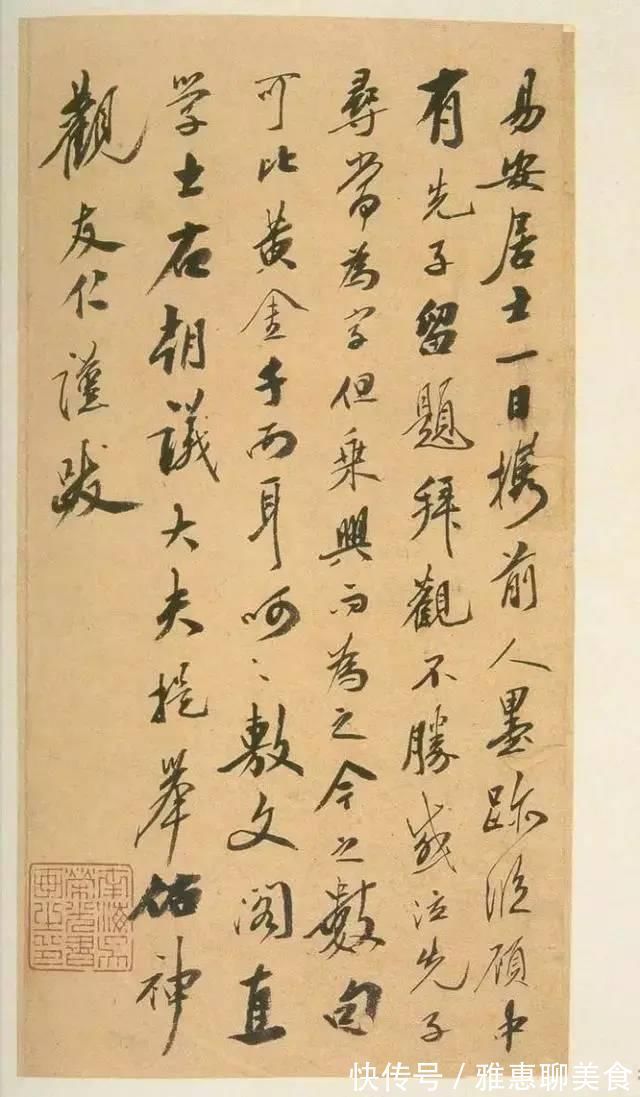 易安居士一日攜前人墨跡臨顧中
有先子留題拜觀不勝感泣先子
尋常為字但乘興而為之今之數句
可比黃金千兩耳呵〻敷文閣直
学士右朝議大夫提舉佑神
觀友仁謹跋
南海吳
榮光書
畫之印
快传号 / 雅惠聊美食